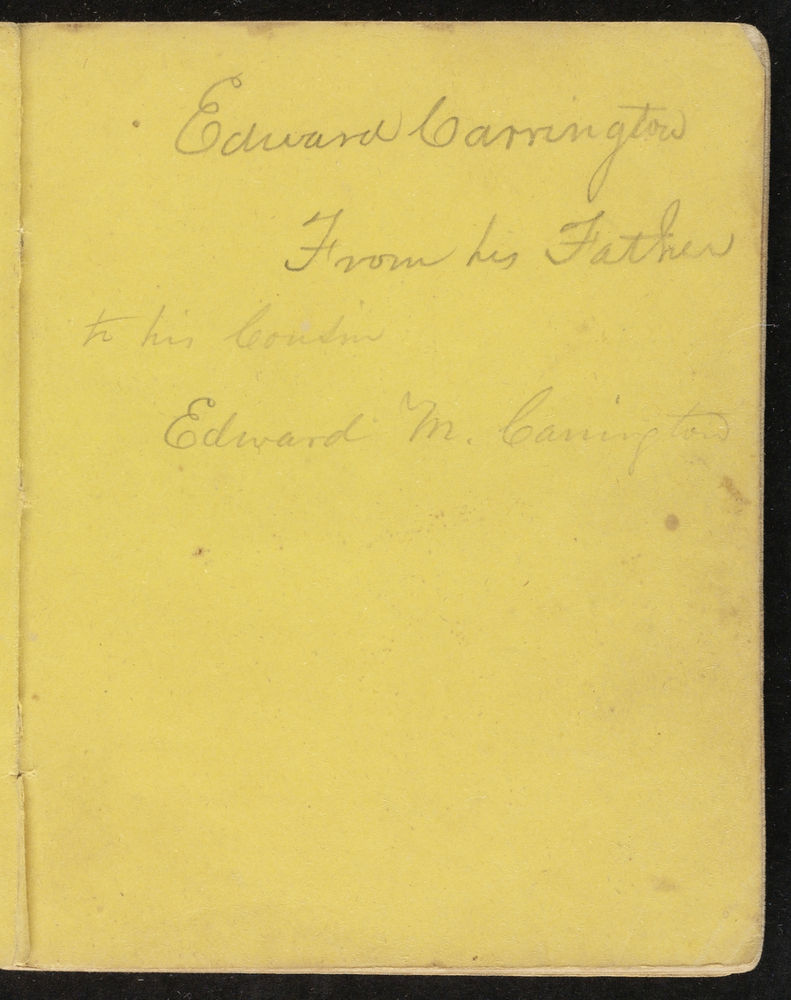 Edward Carrington
From his Father
to his Cousin
Edward M. Carrington